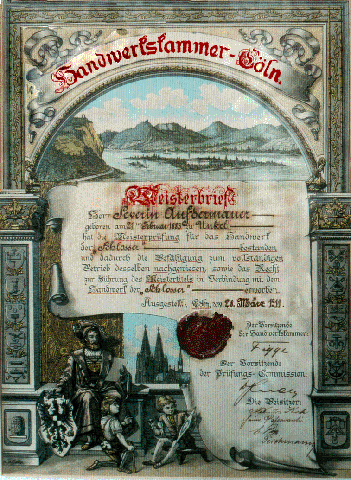 Handwerkskammer-Cöln.
Meisterbrief
Herr Severin
geboren am 21. Februar 1885 zu Unkel
hat die Meisterprüfung für das Handwerk
der Schlosser bestanden
und dadurch die Befähigung zum selbständigen
Betrieb desselben nachgewiesen, sowie das Recht
zur Führung des Meistertitels in Verbindung mit dem
Handwerk der Schlosser erworben.
Ausgestellt, Cöln, den 20. März
Der Vorsitzende
der Handwerkskammer:
Der Vorsitzende
der Prüfungs-Commission
Die Beisitzer: